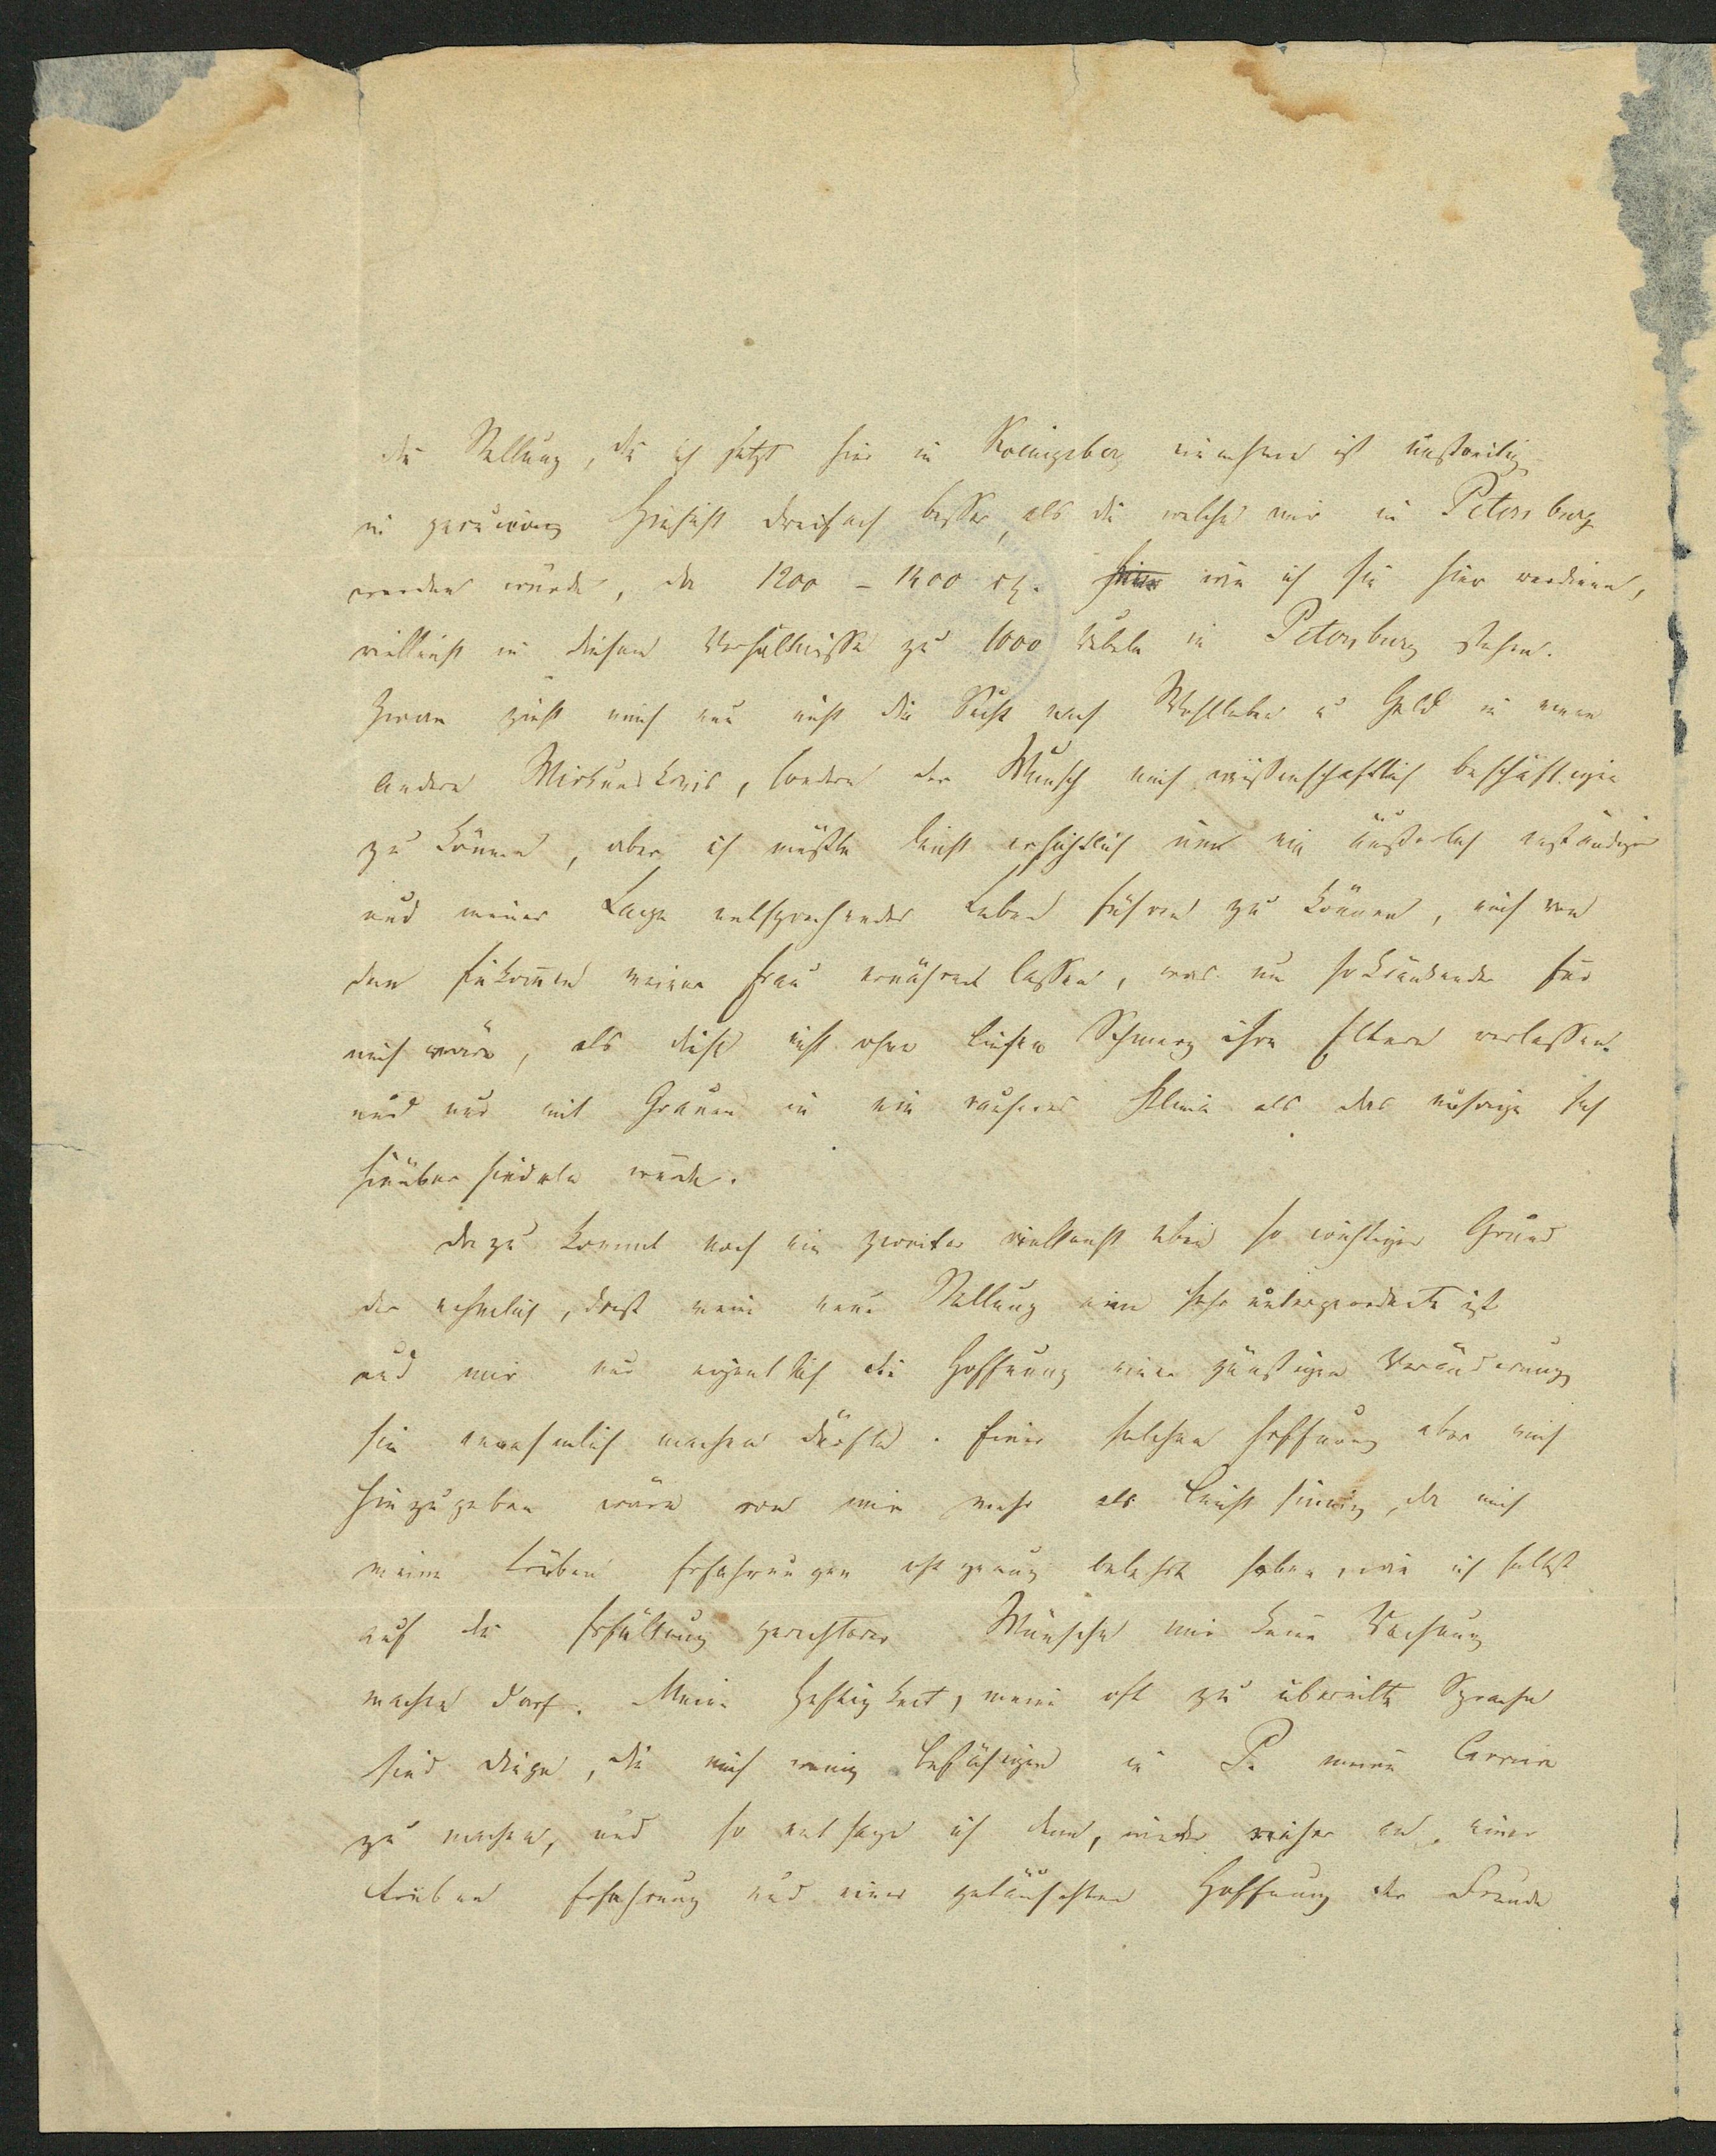 die Stellung, die ich jetzt hier in Koenigsberg einnehme ist unstreitig
in gewisser Hinsicht dreifach besser, als die welche mir in Petersburg
werden würde, da 1200 – 1400 rth. hier wie ich sie hier verdiene,
vielleicht in diesem Verhältnisse zu 1000 Rubeln in Petersburg stehen.
Zwar zieht mich nun nicht die Sucht nach Wohlleben u Geld in einen
andern Wirkunskreis, sondern der Wunsch mich wissenschaftlich beschäftigen
zu können, aber ich müßte leicht ersichtlich um ein äußerlich anständiges
und meiner Lage entsprechendes Leben führen zu können, mich von
dem Einkommen meiner Frau ernähren lassen, was um so kränkender für
mich wäre, als diese nicht ohne tiefen Schmerz ihre Eltern verlassen
und nur mit Grauen in ein rauheres Klima als das unsrige sich
hinüber siedeln würde.
Dazu kommt noch ein zweiter vielleicht eben so wichtiger Grund
der nehmlich, dass meine neue Stellung eine sehr untergeordnete ist
und mir nur eigentlich die Hoffnung einer günstigen Veränderung
sie annehmlich machen dürfte. Einer solchen Hoffnung aber mich
hinzugeben wäre von mir mehr als leicht sinnig, da mich
meine trüben Erfahrungen oft genug belehrt haben, wie ich selbst
auf die Erfüllung gerechterer Wünsche mir keine Rechnung
machen darf. Meine Heftigkeit, meine oft zu übereilte Sprache
sind Dinge, die mich wenig befähigen in P. meine Carriere
zu machen, und so entsage ich denn, wieder reicher an einer
trüben Erfahrung und einer getäuschten Hoffnung der Freude